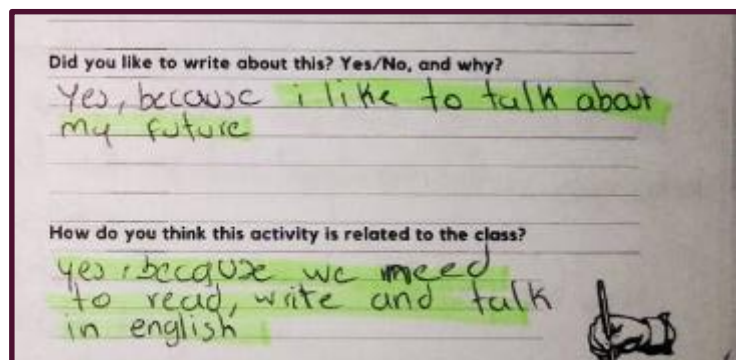 Did you like to write about this? Yes/No, and why?
Yes, because i like to talk about
my future
How do you think this activity is related to the class?
yes, because we need
to read, write and talk
in english